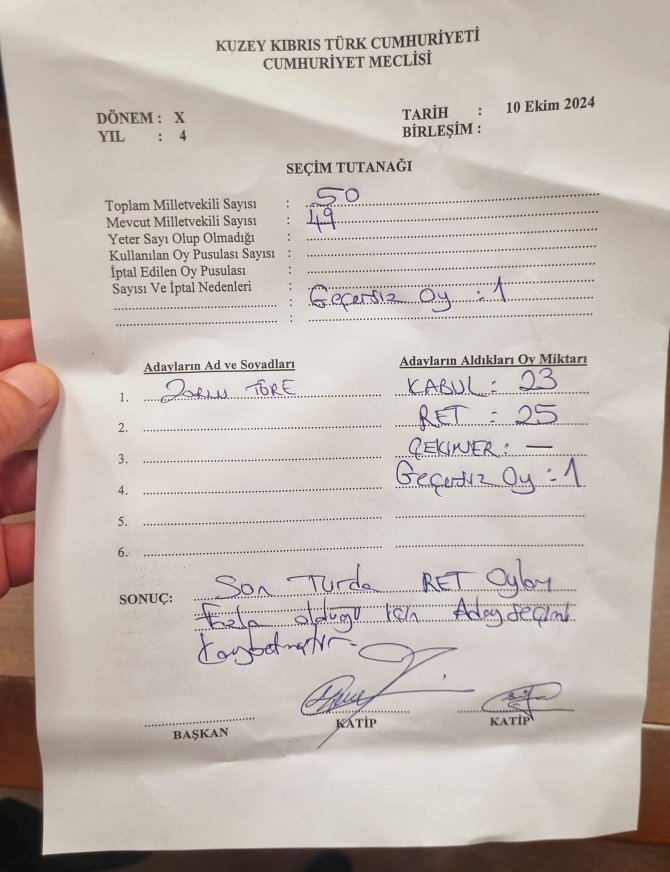 KUZEY KIBRIS TÜRK CUMHURİYETİ
CUMHURİYET MECLİSİ
DÖNEM : X
YIL : 4
TARİH : 10 Ekim 2024
BİRLEŞİM :
SEÇİM TUTANAĞI
Toplam Milletvekili Sayısı : 50
Mevcut Milletvekili Sayısı : 49
Yeter Sayı Olup Olmadığı :
Kullanılan Oy Pusulası Sayısı :
İptal Edilen Oy Pusulası :
Sayısı Ve İptal Nedenleri :
: Geçersiz Oy : 1
:
Adayların Ad ve Soyadları
Adayların Aldıkları Oy Miktarı
1. ZORLU TÖRE KABUL : 23
2. RET : 25
3. ÇEKİMSER : —
4. Geçersiz Oy : 1
5.
6.
SONUÇ: Son Turda RET Oyları
fazla olduğu için Aday seçimi
kaybetmiştir.
BAŞKAN
KATİP
KATİP